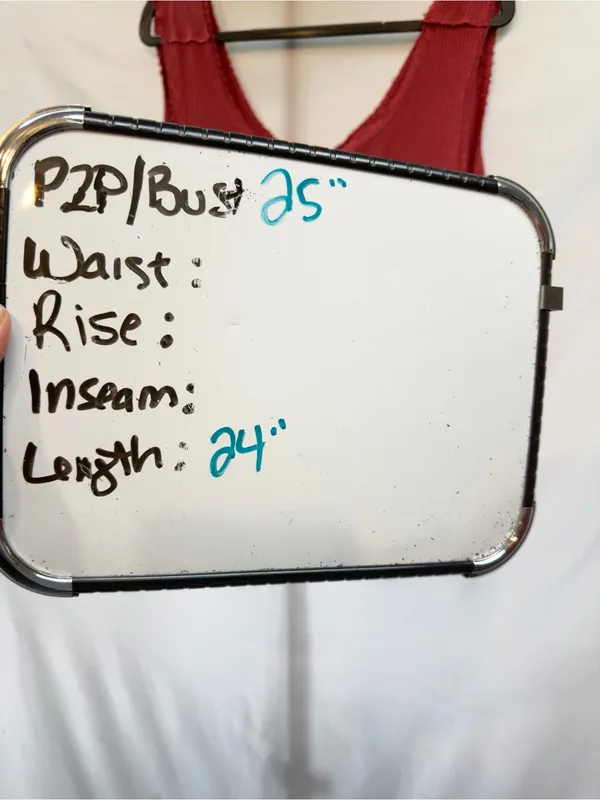 P2P/Bust 25"
Waist:
Rise:
Inseam:
Length: 24"